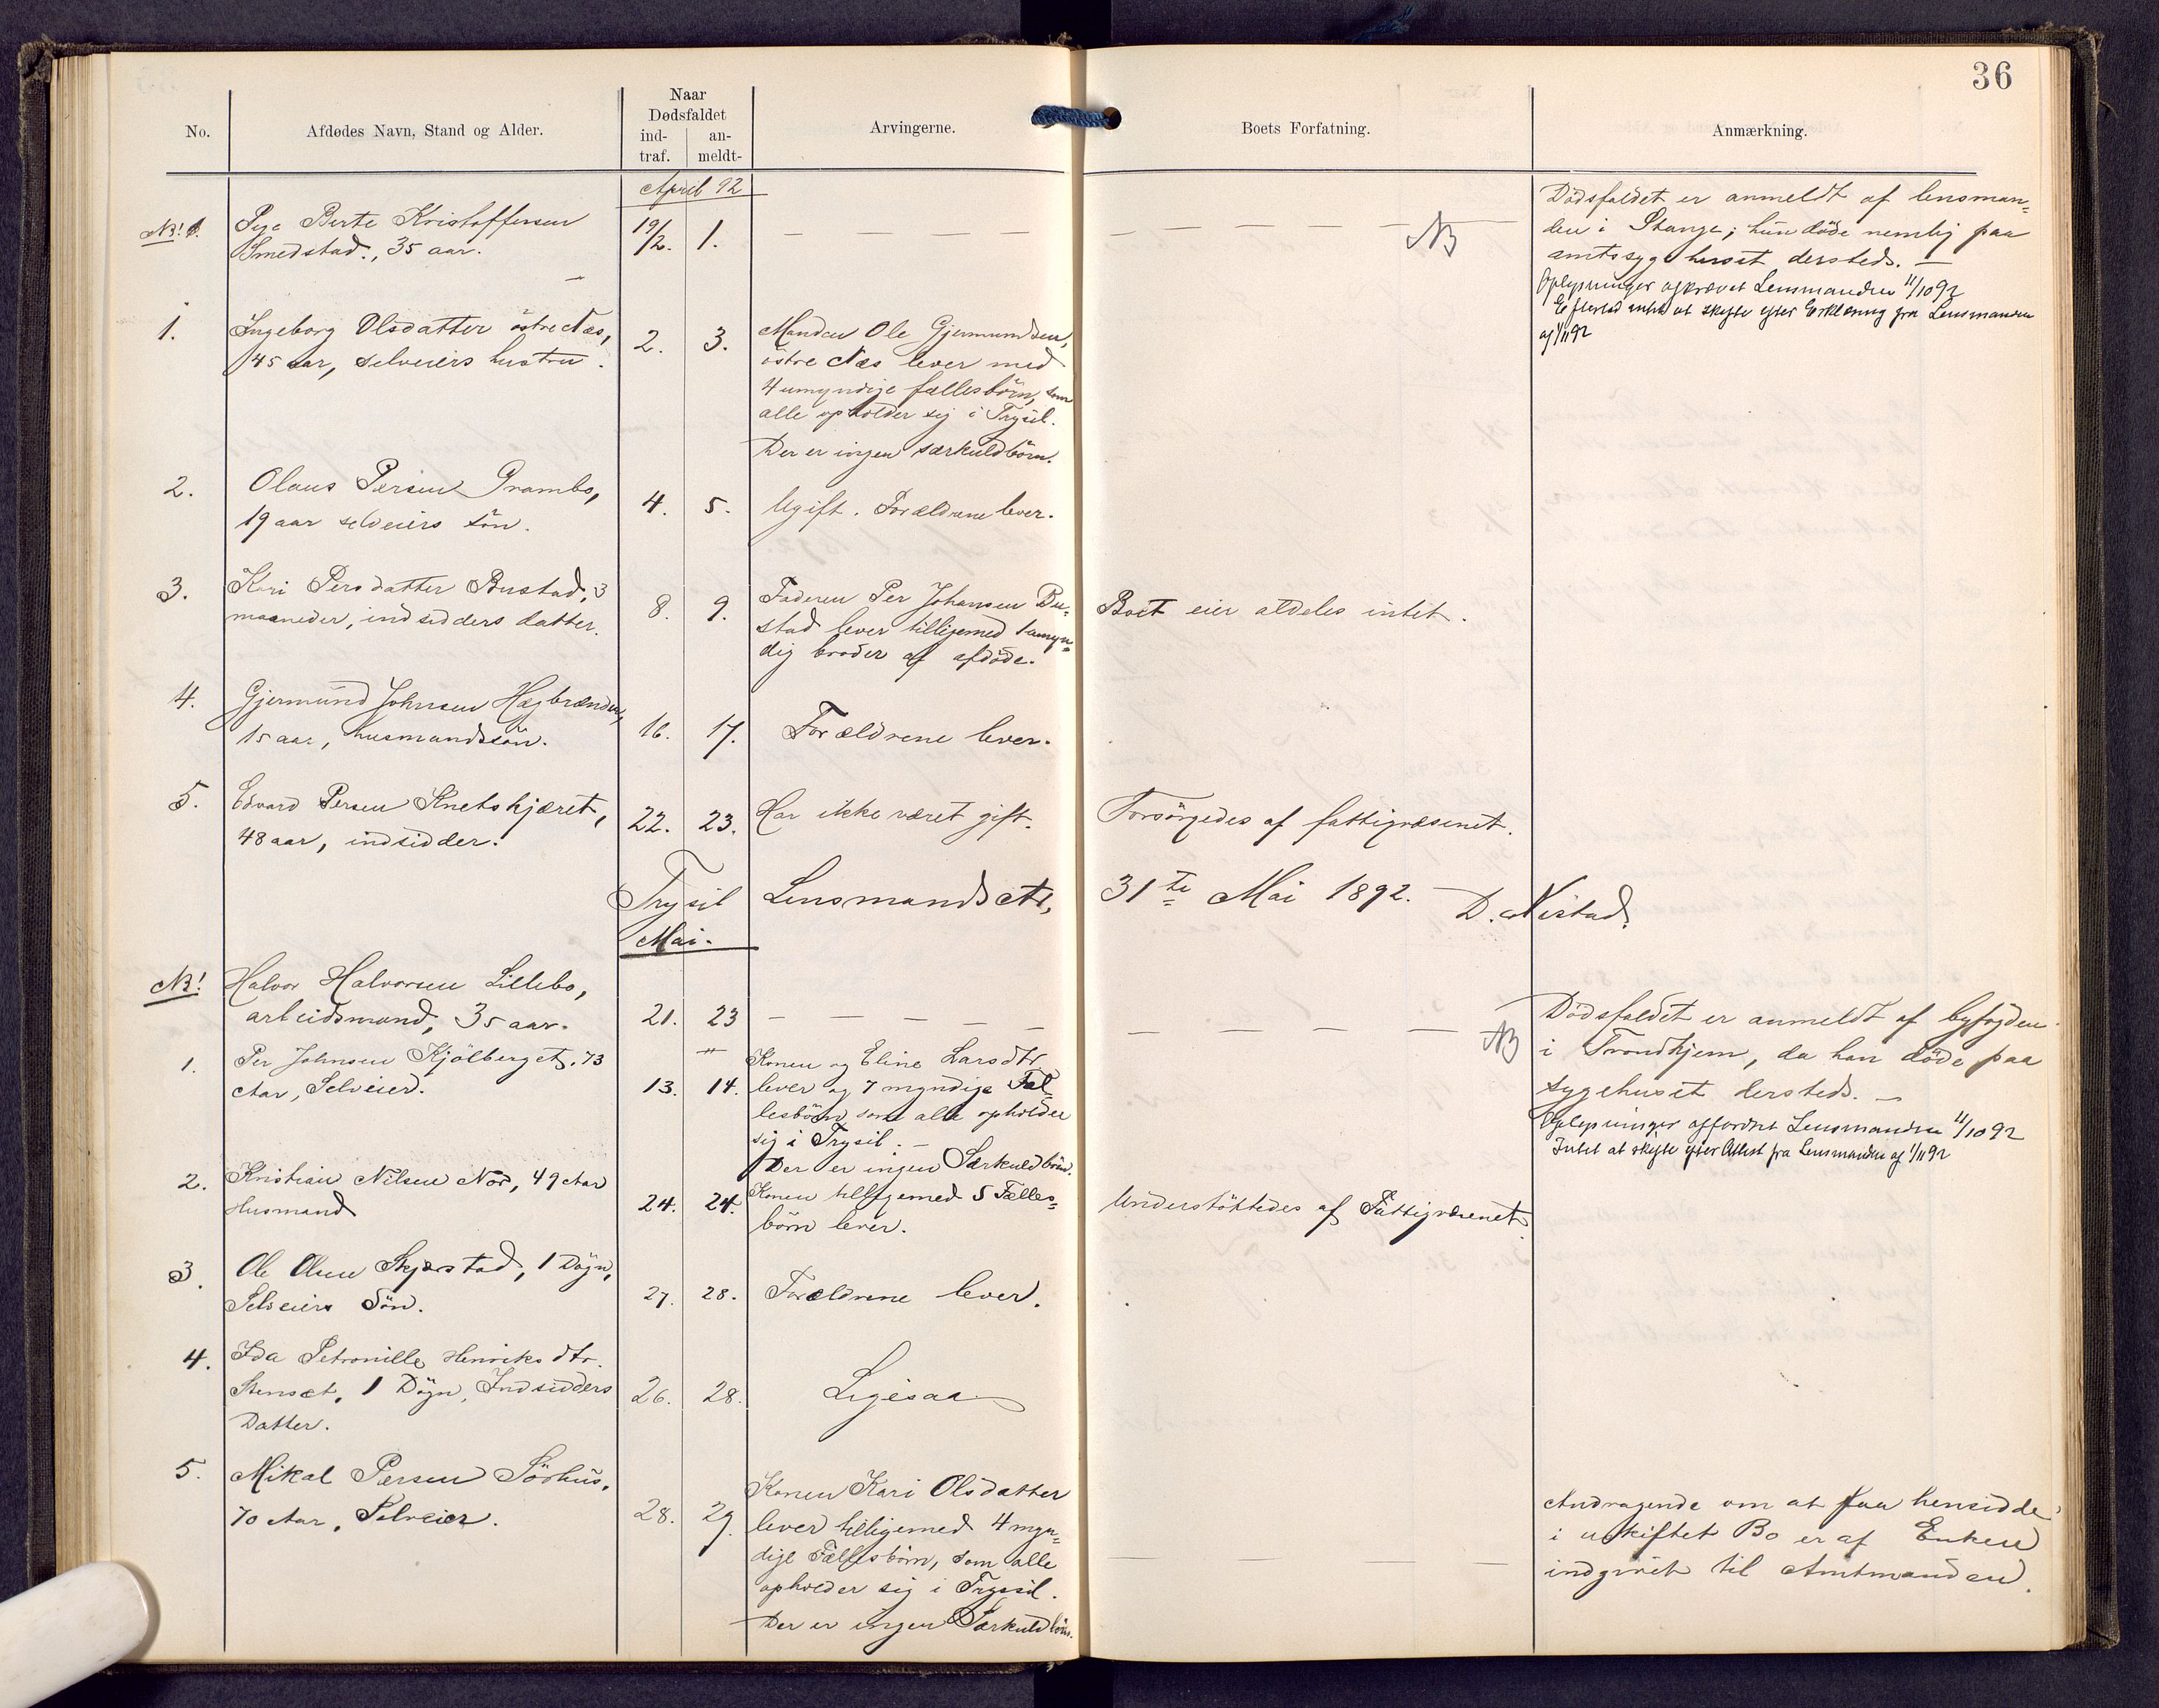 36
No.
Afdødes Navn, Stand og Alder.
Naar
Dødsfaldet
ind-
traf.
an-
meldt-
Arvingerne.
Boets Forfatning.
Anmærkning.
April 92
NB! 1.
Pige Berte Kristoffersen
Smedstad., 35 aar.
19/2. 1.
NB
Dödsfaldet er anmeldt af lensman=
den i Stange; hun döde nemlig paa
amtssygehuset dersteds. —
Oplysninger afkrævet Lensmanden 11/10 92
Efterlod intet at skifte efter Erklæring fra Lensmanden
af 1/11 92
1.
Ingeborg Olsdatter östre Næs,
45 aar, selveiers hustru.
2. 3.
Manden Ole Gjermundsen,
östre Næs lever med
4 umyndige fællesbörn, som
alle opholder sig i Trysil.
Der er ingen særkuldbörn.
2.
Olaus Persen Grambo,
19 aar selveiers sön.
4. 5.
Ugift. Forældrene lever.
3.
Kari Persdatter Bustad, 3
maaneder, indsidders datter.
8. 9.
Faderen Per Johansen Bu=
stad lever tilligemed 1 umyn=
dig broder af afdöde.
Boet eier aldeles intet.
4.
Gjermund Johnsen Hagbrænden,
15 aar, husmandssön.
16. 17.
Forældrene lever.
5.
Edvard Persen Knetskjæret,
48 aar, indsidder.
22. 23.
Har ikke været gift.
Forsörgedes af fattigvæsenet.
Trysil Lensmands At, 31te Mai 1892. D. Nistad.
Mai.
NB!
Halvor Halvorsen Lillebo,
arbeidsmand, 35 aar.
21. 23
NB
Dödsfaldet er anmeldt af byfogden
i Trondhjem, da han döde paa
sygehuset dersteds. —
Oplysninger affordret Lensmanden 11/10 92
Intet at skifte efter Attest fra Lensmanden af 1/11 92
1.
Per Johnsen Kjölberget, 73
Aar, Selveier.
13. 14.
Konen og Eline Larsdtr.
lever og 7 myndige Fæl=
lesbörn som alle opholder
sig i Trysil. —
Der er ingen Særkuldbörn.
2.
Kristian Nilsen Nor, 49 Aar
Husmand
24. 24.
Konen tilligemed 5 Fælles=
börn lever.
Understöttedes af Fattigvæsenet.
3.
Ole Olsen Skjærstad, 1 Dögn,
Selveiers Sön.
27. 28.
Forældrene lever.
4.
Ida Petronille Henriksdtr.
Stensæt, 1 Dögn, Indsidders
Datter.
26. 28.
Ligesaa
5.
Mikal Persen Sörhus,
70 Aar, Selveier.
28. 29.
Konen Kari Olsdatter
lever tilligemed 4 myn=
dige Fællesbörn, som alle
opholder sig i Trysil.
Der er ingen Særkuldbörn.
Andragende om at faa hensidde
i uskiftet Bo er af Enken
indgivet til Amtmanden.